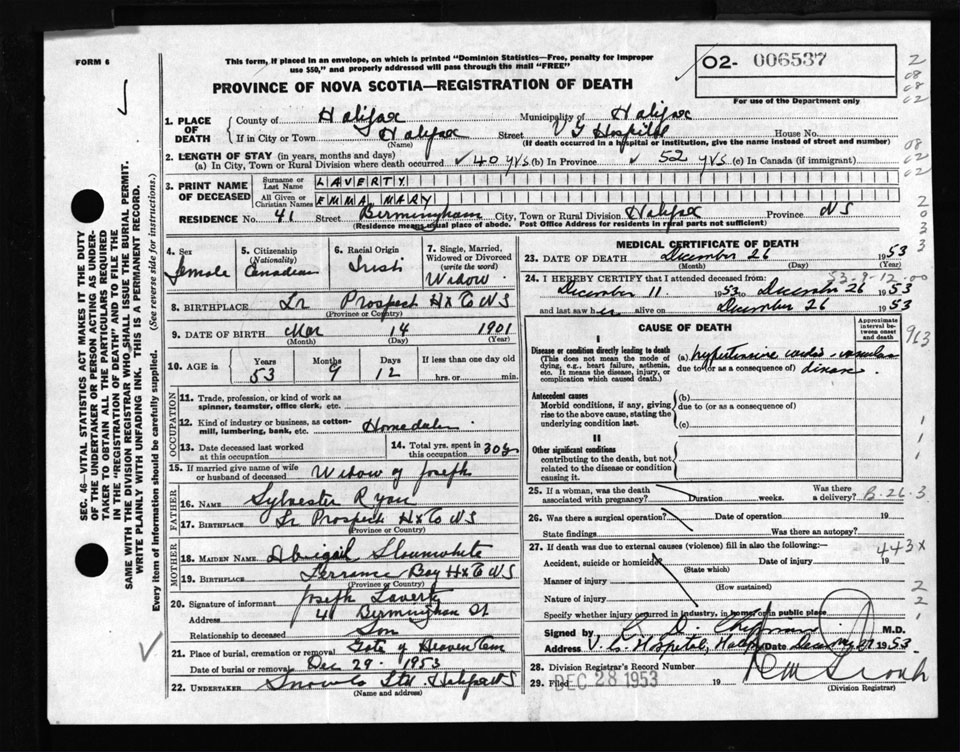 FORM 6
This form, if placed in an envelope, on which is printed "Dominion Statistics—Free, penalty for improper
use $50," and properly addressed will pass through the mail "FREE"
PROVINCE OF NOVA SCOTIA—REGISTRATION OF DEATH
O2- 006537
For use of the Department only
2
08
08
02
08
02
02
2
0
3
3
3
SEC. 46—VITAL STATISTICS ACT MAKES IT THE DUTY
OF THE UNDERTAKER OR PERSON ACTING AS UNDER-
TAKER TO OBTAIN ALL THE PARTICULARS REQUIRED
IN THE "REGISTRATION OF DEATH" AND TO FILE THE
SAME WITH THE DIVISION REGISTRAR WHO SHALL ISSUE THE BURIAL PERMIT.
WRITE PLAINLY WITH UNFADING INK. THIS IS A PERMANENT RECORD.
Every item of Information should be carefully supplied. (See reverse side for instructions.)
1. PLACE OF DEATH
County of Halifax Municipality of Halifax
If in City or Town Halifax Street V G Hospital House No.
(Name) (If death occurred in a hospital or institution, give the name instead of street and number)
2. LENGTH OF STAY (in years, months and days)
(a) In City, Town or Rural Division where death occurred 40 yrs (b) In Province 52 yrs (c) In Canada (if immigrant)
3. PRINT NAME OF DECEASED
Surname or Last Name LAVERTY
All Given or Christian Names EMMA MARY
RESIDENCE No. 41 Street Birmingham City, Town or Rural Division Halifax Province NS
(Residence means usual place of abode. Post Office Address for residents in rural parts not sufficient)
4. Sex Female
5. Citizenship (Nationality) Canadian
6. Racial Origin Irish
7. Single, Married, Widowed or Divorced (write the word) Widow
8. BIRTHPLACE Lr Prospect Hx Co NS
(Province or Country)
9. DATE OF BIRTH Mar 14 1901
(Month) (Day) (Year)
10. AGE in Years 53 Months 9 Days 12 If less than one day old
hrs. or min.
OCCUPATION
11. Trade, profession, or kind of work as
spinner, teamster, office clerk, etc.
12. Kind of industry or business, as cotton-
mill, lumbering, bank, etc. Homeduties
13. Date deceased last worked
at this occupation
14. Total yrs. spent in
this occupation 30 yrs
15. If married give name of wife
or husband of deceased Widow of Joseph
FATHER
16. NAME Sylvester Ryan
17. BIRTHPLACE Lr Prospect Hx Co NS
(Province or Country)
MOTHER
18. MAIDEN NAME Abigail Slaunwhite
19. BIRTHPLACE Terrence Bay Hx Co NS
(Province or Country)
20. Signature of informant Joseph Laverty
Address 41 Birmingham St
Relationship to deceased Son
21. Place of burial, cremation or removal Gate of Heaven Cem
Date of burial or removal Dec 29. 1953
22. UNDERTAKER Snows Ltd. Halifax NS
(Name and address)
MEDICAL CERTIFICATE OF DEATH
23. DATE OF DEATH December 26 1953
(Month) (Day) (Year)
53-9-12-00
24. I HEREBY CERTIFY that I attended deceased from:
December 11 1953 to December 26 1953
and last saw her alive on December 26 1953
CAUSE OF DEATH
Approximate interval between onset and death
963
I
Disease or condition directly leading to death
(This does not mean the mode of
dying, e.g., heart failure, asthenia,
etc. It means the disease, injury, or
complication which caused death.)
(a) hypertensive cardio-vascular
due to (or as a consequence of) disease
Antecedent causes
Morbid conditions, if any, giving
rise to the above cause, stating the
underlying condition last.
(b)
due to (or as a consequence of)
(c)
II
Other significant conditions
contributing to the death, but not
related to the disease or condition
causing it.
1
1
1
25. If a woman, was the death
associated with pregnancy? Duration weeks. Was there
a delivery?
B-26-3
26. Was there a surgical operation? Date of operation 19
State findings Was there an autopsy?
27. If death was due to external causes (violence) fill in also the following:—
443X
Accident, suicide or homicide
(State which)
Manner of injury
(How sustained)
Nature of injury
Specify whether injury occurred in industry, in home or in public place
2
2
1
Signed by M.D.
Address V. G. Hospital, Date 27 1953
28. Division Registrar's Record Number
29. Filed DEC 28 1953 19
(Division Registrar)